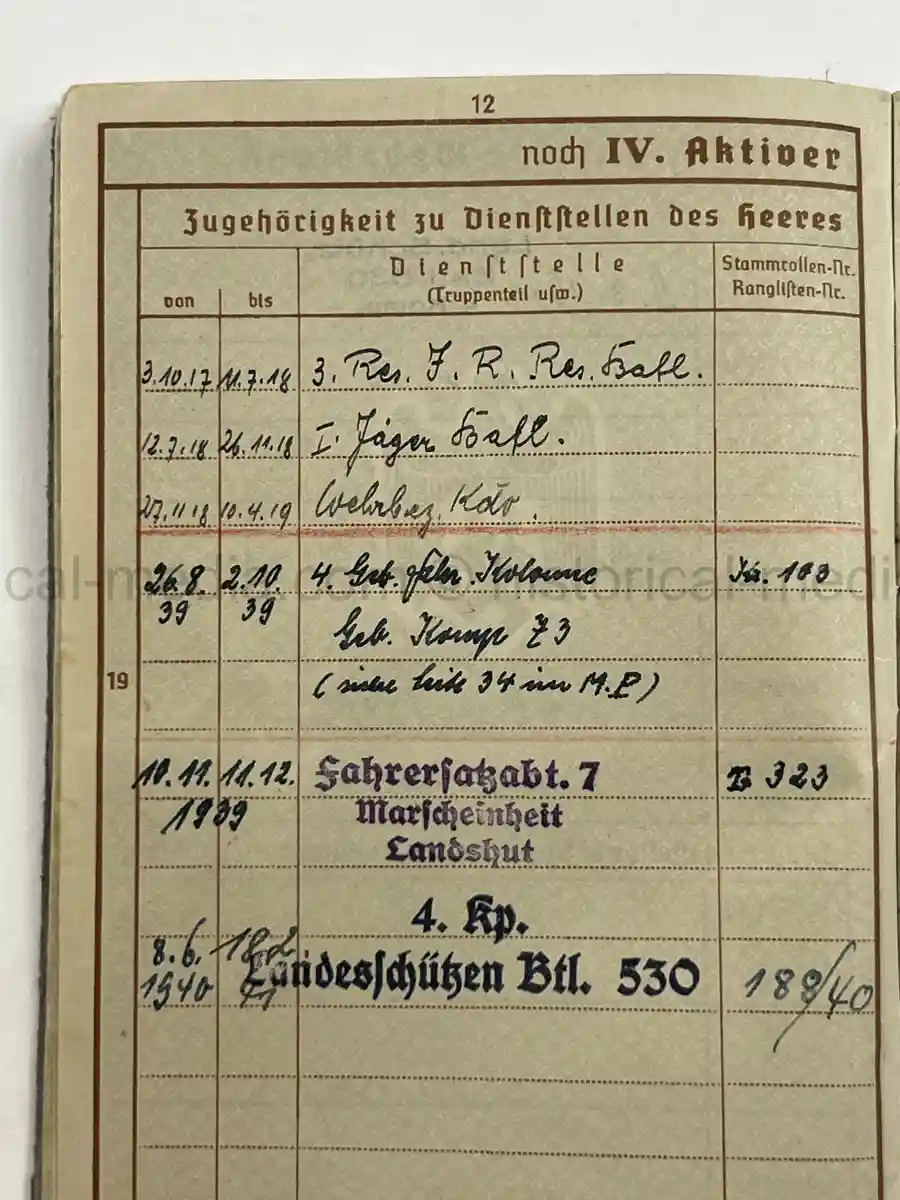 12
noch IV. Aktiver
Zugehörigkeit zu Dienststellen des Heeres
von bis Dienststelle (Truppenteil usw.) Stammrollen-Nr. Ranglisten-Nr.
3.10.17 11.7.18 3. Res. J. R. Res. Batl.
12.7.18 26.11.18 I. Jäger Batl.
27.11.18 10.4.19 Wehrbez. Kdo.
26.8. 2.10. 4. Geb. Kolonne 103
39 39
Geb. Komp 73
19
(siehe Seite 34 im M.P)
10.11. 11.12. Fahrersatzabt. 7 323
1939 Marscheinheit
Landshut
4. Kp.
8.6. 18.2
1940 41 Landesschützen Btl. 530 188/40